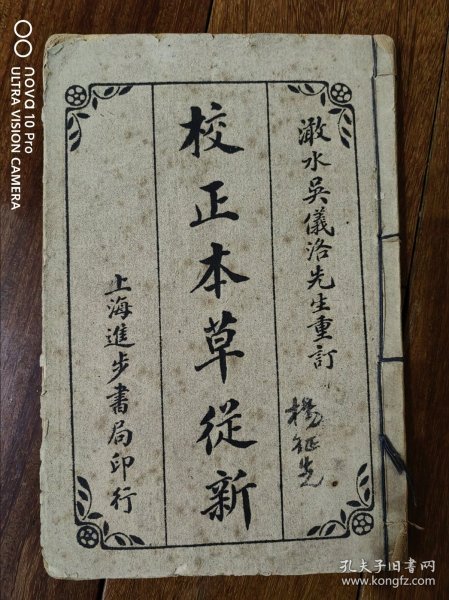 澉水吳儀洛先生重訂
楊征先
校正本草從新
上海進步書局印行
nova 10 Pro
ULTRA VISION CAMERA
孔夫子旧书网
www.kongfz.com